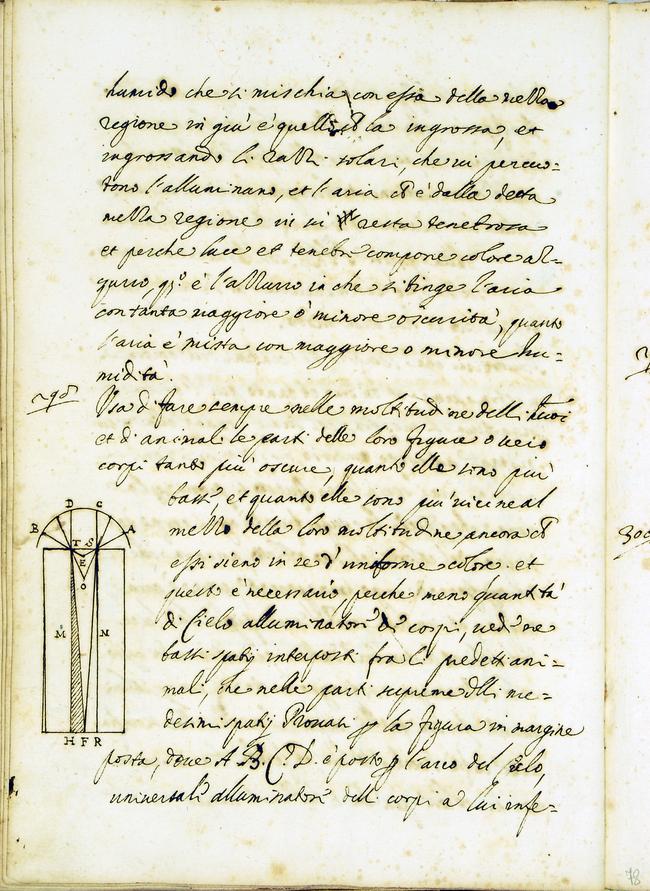 humido che si mischia con essa della mezza
regione in giù è quello ch la ingrossa, et
ingrossando li razzi solari, che vi percuo=
tono l'alluminano, et l'aria ch è dalla detta
mezza regione in su resta tenebrosa
et perche luce et tenebre compone colore az=
zurro, qº è l'azzurro in che si tinge l'aria
con tanta maggiore ò minore oscurità, quanto
l'aria è mista con maggiore o minore hu=
midità.
298
Usa di fare sempre nelle moltitudine delli huoi
et di animali le parti delle loro figure o vero
corpi tanto più oscure, quanto elle sono più
basse, et quanto elle sono più vicine al
mezzo della loro moltitudine, ancora ch
essi sieno in se d'uniforme colore. et
questo è necessario, perche meno quantità
di Cielo alluminatore de' corpi, vede ne
bassi spatij interposti fra li predetti ani=
mali, che nelle parti supreme delli me=
desimi spatij Provasi p la figura in margine
posta, dove A B. C. D. è posto p l'arco del cielo,
universale alluminatore delli corpi a lui infe=
B D C A
T S
E
O
M N
H F R
300
78